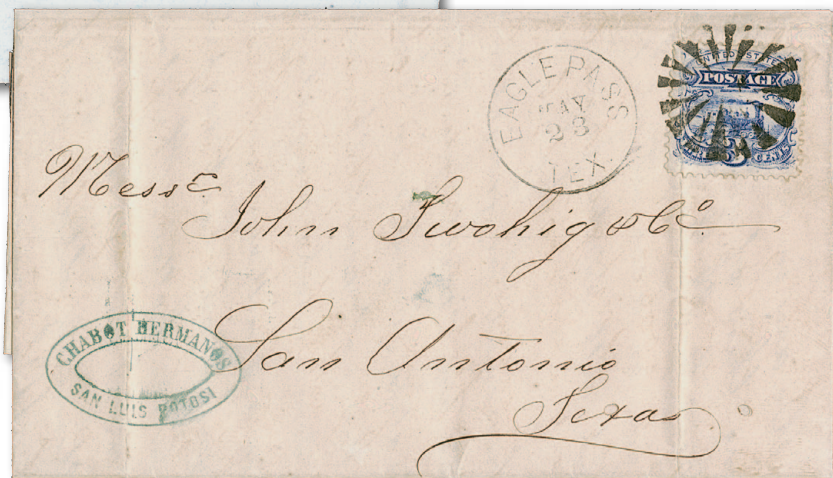 EAGLE PASS
MAY
23
TEX.
UNITED STATES
POSTAGE
3
CENTS
Mess^rs
John Twohig & Co
San Antonio
Texas
CHABOT HERMANOS
SAN LUIS POTOSI